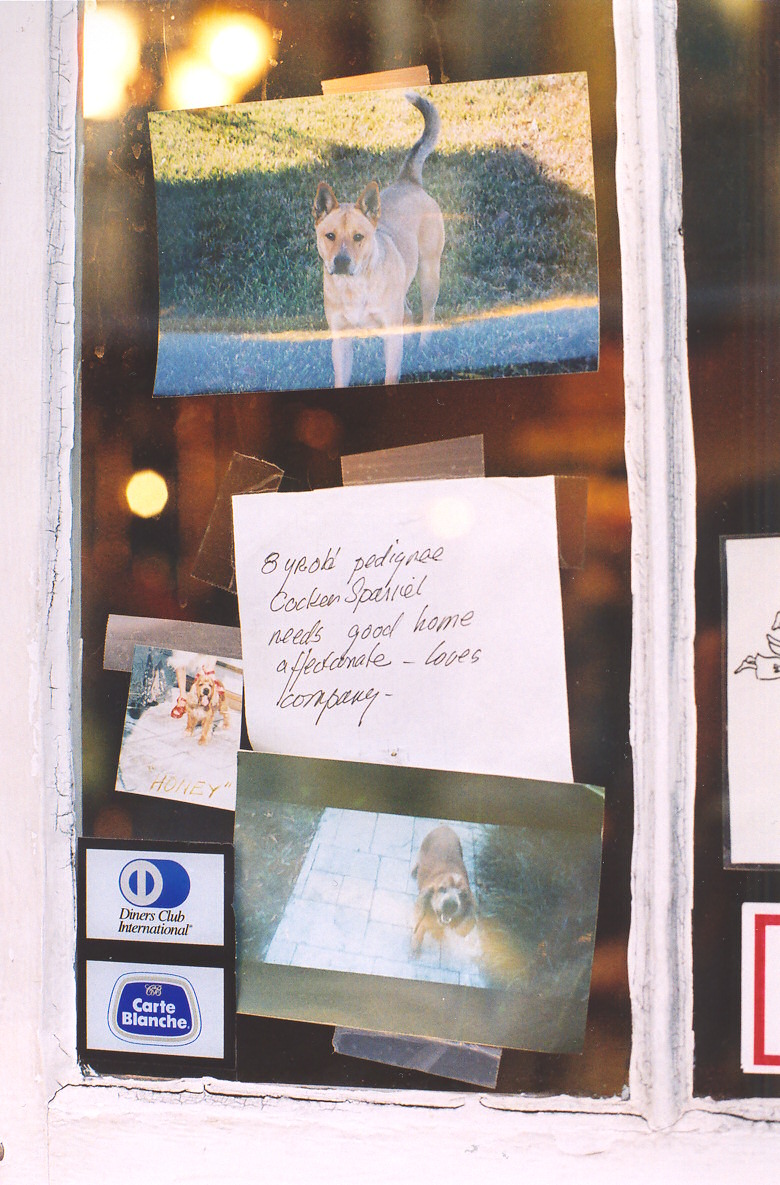 8 yr. old pedigree
Cocker Spaniel
needs good home
affectionate - loves
company -
"HONEY"
Diners Club
International®
Carte
Blanche®